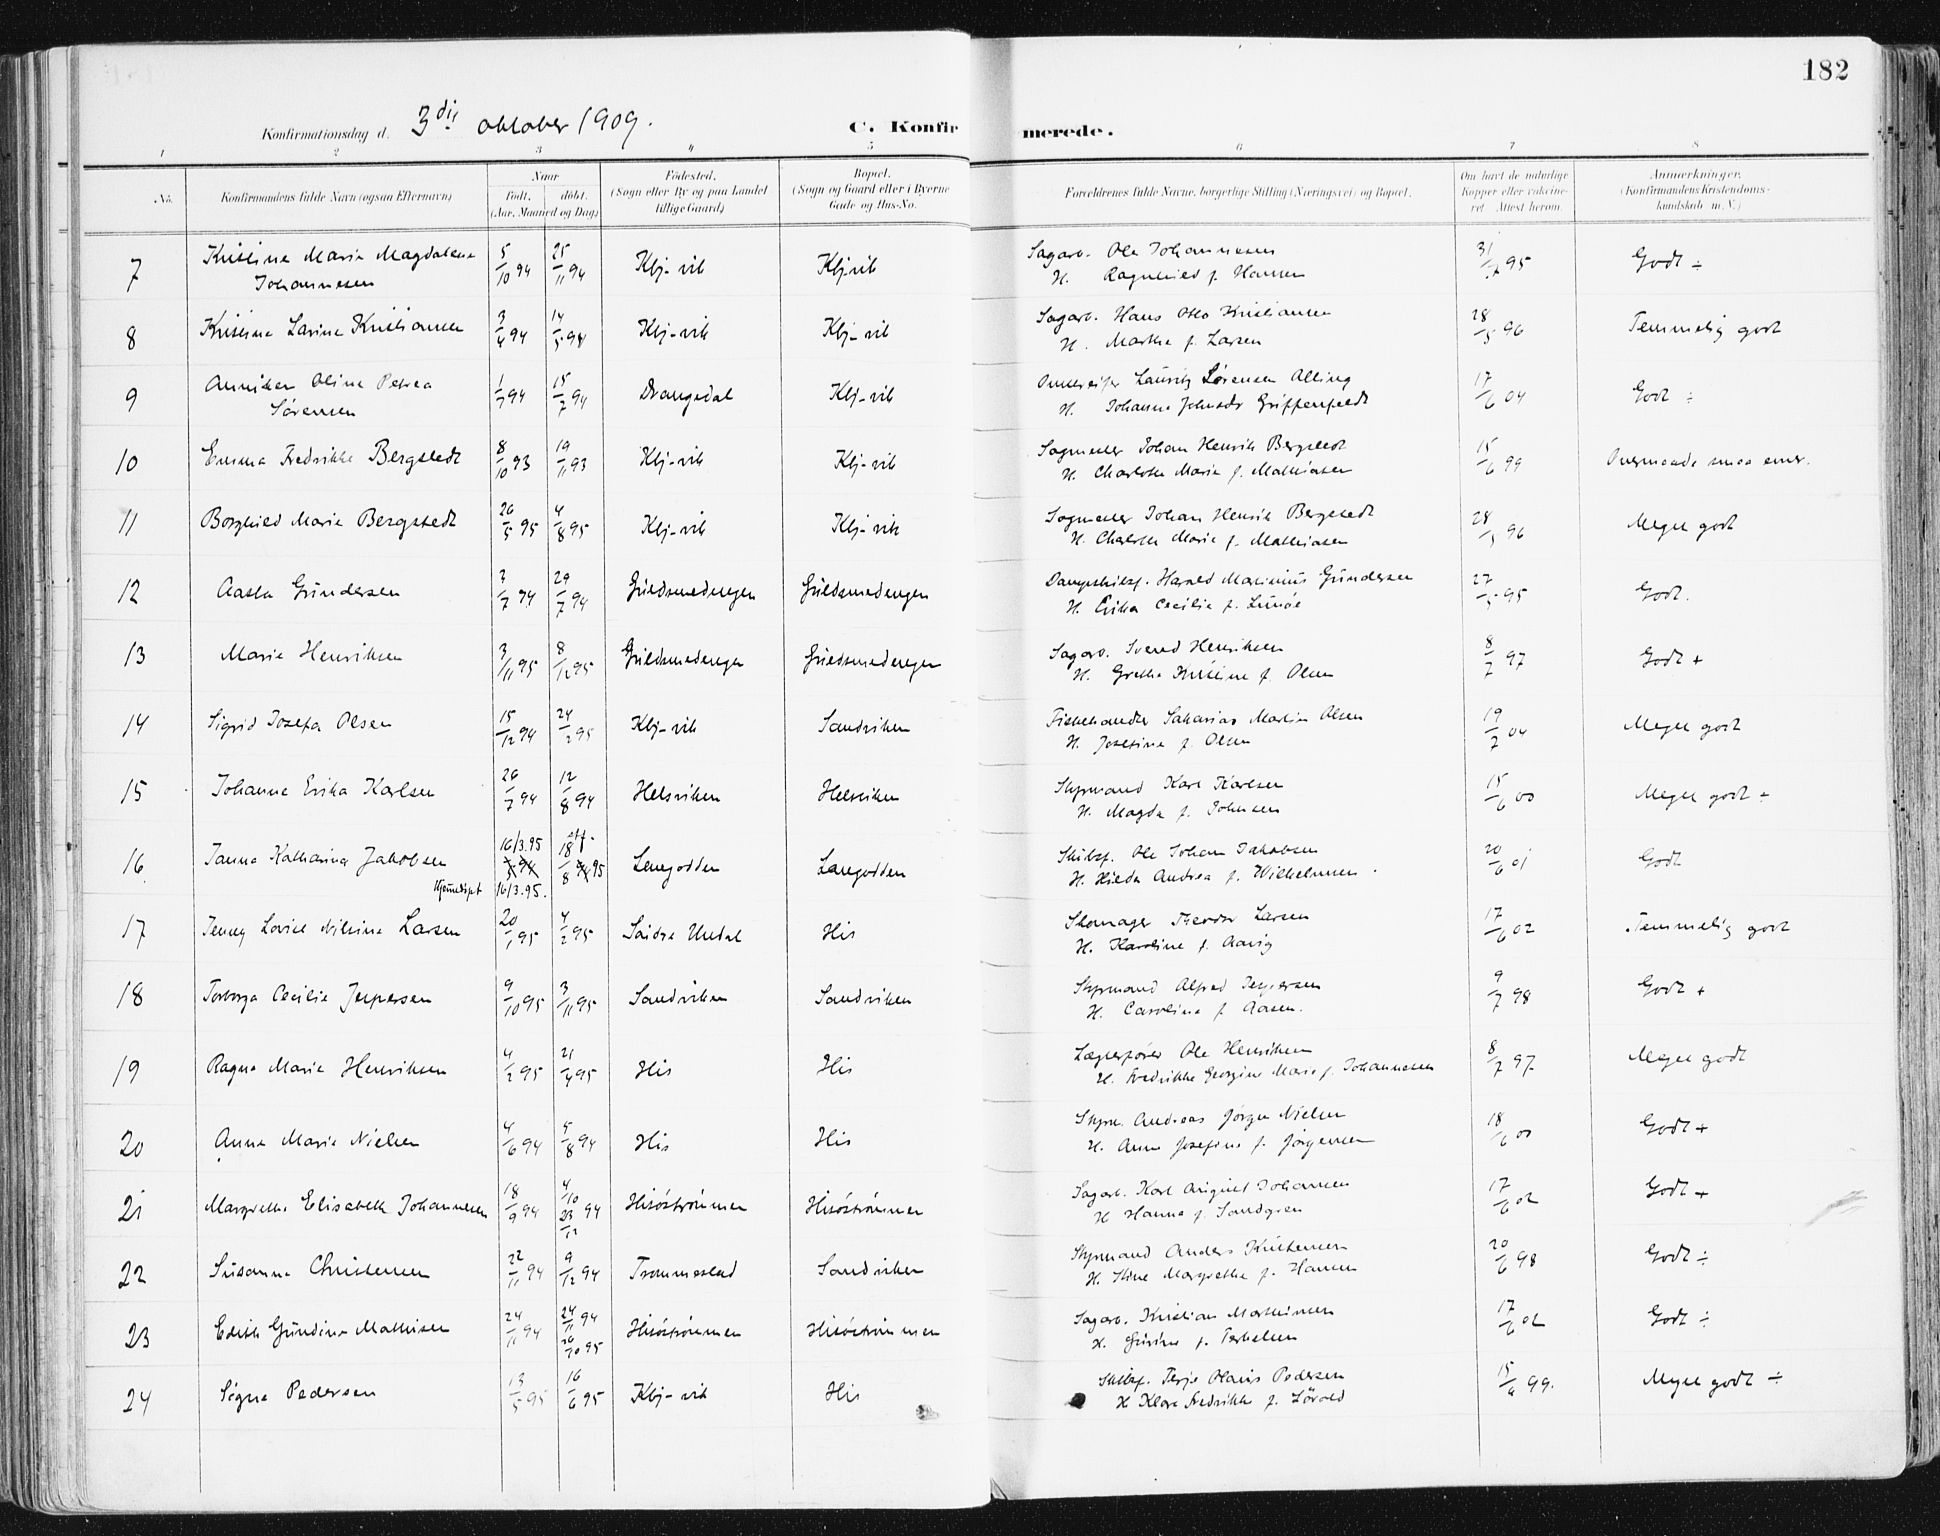 182
Konfirmationsdag d. 3die oktober 1909.
C. Konfirmerede.
1 2 3 4 5 6 7 8
No.
Konfirmandens fulde Navn (ogsaa Efternavn)
Naar
født. døbt.
(Aar, Maaned og Dag)
Fødested.
(Sogn eller By og paa Landet
tillige Gaard)
Bopæl.
(Sogn og Gaard eller i Byerne
Gade og Hus-No.
Forældrenes fulde Navne, borgerlige Stilling (Næringsvei) og Bopæl.
Om havt de naturlige
Kopper eller vaksine-
ret. Attest herom.
Anmærkninger.
(Konfirmandens Kristendoms-
kundskab m. V.)
7 Kristine Marie Magdalene 5/10 94 25/11 94 Kbj-vik Kbj-vik Sagarb. Ole Johannesen 31/7 95 Godt ÷
Johannesen H. Ragnhild f. Hansen
8 Kristine Larine Kristiansen 3/4 94 14/5 94 Kbj-vik Kbj-vik Sagarb. Hans Otto Kristiansen 28/5 96 Temmelig godt
H. Marthe f. Larsen
9 Anniken Oline Petrea 1/7 94 15/7 94 Drangedal Kbj-vik Lauritz Sørensen Alling 17/6 04 Godt ÷
Sørensen H. Johanne Griffenfeldt
10 Emma Fredrikke Bergstedt 8/10 93 19/11 93 Kbj-vik Kbj-vik Sagmester Johan Henrik Bergstedt 15/6 99
H. Charlotte Marie f. Mathiasen
11 Borghild Marie Bergstedt 26/5 95 4/8 95 Kbj-vik Kbj-vik Sagmester Johan Henrik Bergstedt 28/5 96 Meget godt
H. Charlotte Marie f. Mathiasen
12 Aasta Gundersen 3/7 94 29/7 94 Guldsmedengen Guldsmedengen Dampskibsf. Harald Marinius Gundersen 27/5 95 Godt.
H. Erika Cecilie f.
13 Marie Henriksen 3/11 95 8/12 95 Guldsmedengen Guldsmedengen Sagarb. Svend Henriksen 8/7 97 Godt +
H. Grethe Kristine f. Olsen
14 Sigrid Josefa Olsen 15/12 94 24/2 95 Kbj-vik Sandviken Fiskehandler Sakarias Martin Olsen 19/7 04 Meget godt
H. Josefine f. Olsen
15 Johanne Erika Karlsen 26/7 94 12/8 94 Helsviken Helsviken Styrmand Karl Karlsen 15/6 00 Meget godt ÷
H. Magda f. Johnsen
16/3.95 att.
16 Janna Katharina Jakobsen 18/8 95 Langodden Langodden Skibsf. Ole Johan Jakobsen 20/6 01 Godt
Hjemdøpt 16/3.95. H. Hilda Andrea f. Wilhelmsen.
17 Jenny Lovise Nilsine Larsen 20/1 95 4/2 95 Søndre Undal His Skomager Theodor Larsen 17/6 02 Temmelig godt
H. Karoline f. Aavig
18 Torborg Cecilie Jespersen 9/10 95 3/11 95 Sandviken Sandviken Styrmand Alfred Jespersen 9/7 98 Godt +
H. Caroline f. Aasen.
19 Ragna Marie Henriksen 4/2 95 21/4 95 His His Lægterfører Ole Henriksen 8/7 97 Meget godt
H. Fredrikke Georgine Marie f. Johannesen
20 Anna Marie Nielsen 4/6 94 5/8 94 His His Styrm. Andreas Jørgen Nielsen 18/6 00 Godt +
H. Anne Josefine f. Jørgensen
21 Margrethe Elisabeth Johannesen 18/9 94 4/10 94 Hisöströmmen Hisöströmmen Sagarb. Karl August Johansen 17/6 02 Godt +
23/12 H. Hanna f. Sandgren
22 Susanne Christensen 22/11 94 9/12 94 Trommestad Sandviken Styrmand Anders Kristensen 20/6 98 Godt ÷
H. Stine Margrethe f. Hansen
23 Edith Gundine Mathisen 24/11 94 24/11 94 Hisöströmmen Hisöströmmen Sagarb. Kristian Mathinsen 17/6 02 Godt ÷
20/10 95 H. Gurine f. Terkelsen
24 Signe Pedersen 13/5 95 16/6 95 Kbj-vik His Skibsf. Terje Olaus Pedersen 15/6 99. Meget godt ÷
H Klara Fredrikke f. Lövold